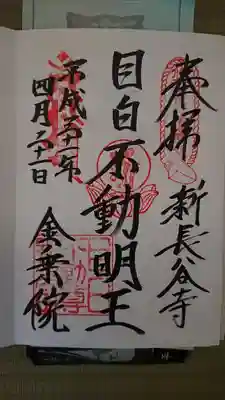 奉拝
新長谷寺
目白不動明王
平成二十一年
四月二十日
金乗院